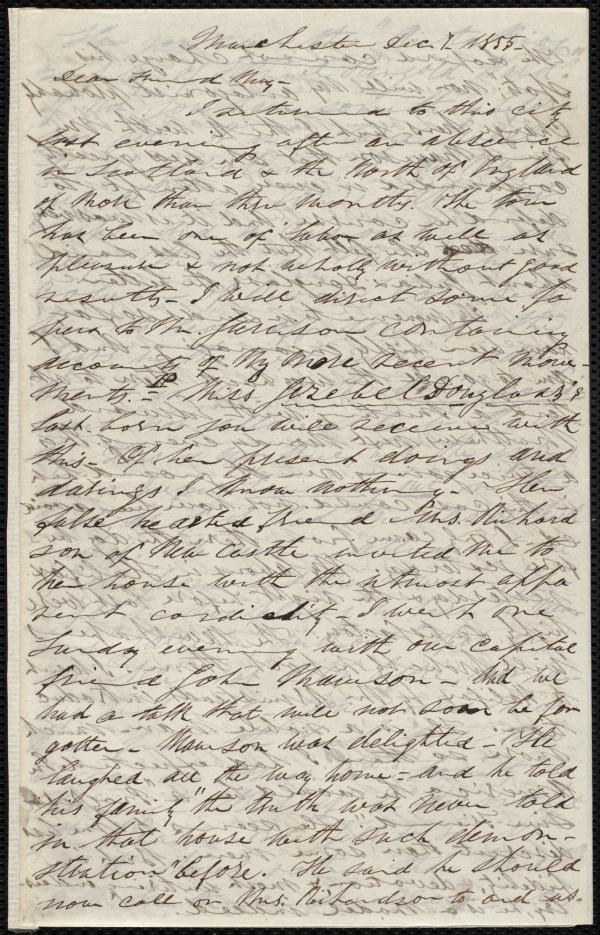 Manchester Dec. 7. 1855-
Dear Friend May-
I returned to this city
last evening after an absence
in Scotland & the North of England
of more than three months. The tour
has been one of labor as well as
pleasure & not wholly without good
results- I will direct some pa
pers to Mr. Garrison containing
accounts of my more recent move-
ments.- Miss Jezebel Douglass's
last born you will receive with
this- Of her present doings and
darings I know nothing- Her
false hearted friend Mrs. Richard
son of Newcastle invited me to
her house with the utmost appa
rent cordiality- I went one
Sunday evening with our capital
friend John Mawson- And we
had a talk that will not soon be for
gotten- Mawson was delighted- He
laughed all the way home- and he told
his family "the truth was never told
in that house with such demon-
stration" before. He said he should
now call on Mrs. Richardson to aid us-